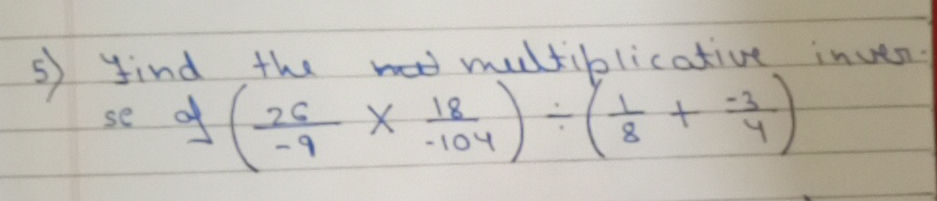 5) Find the multiplicative inver-
se of (26/-9 × 18/-104) ÷ (1/8 + -3/4)